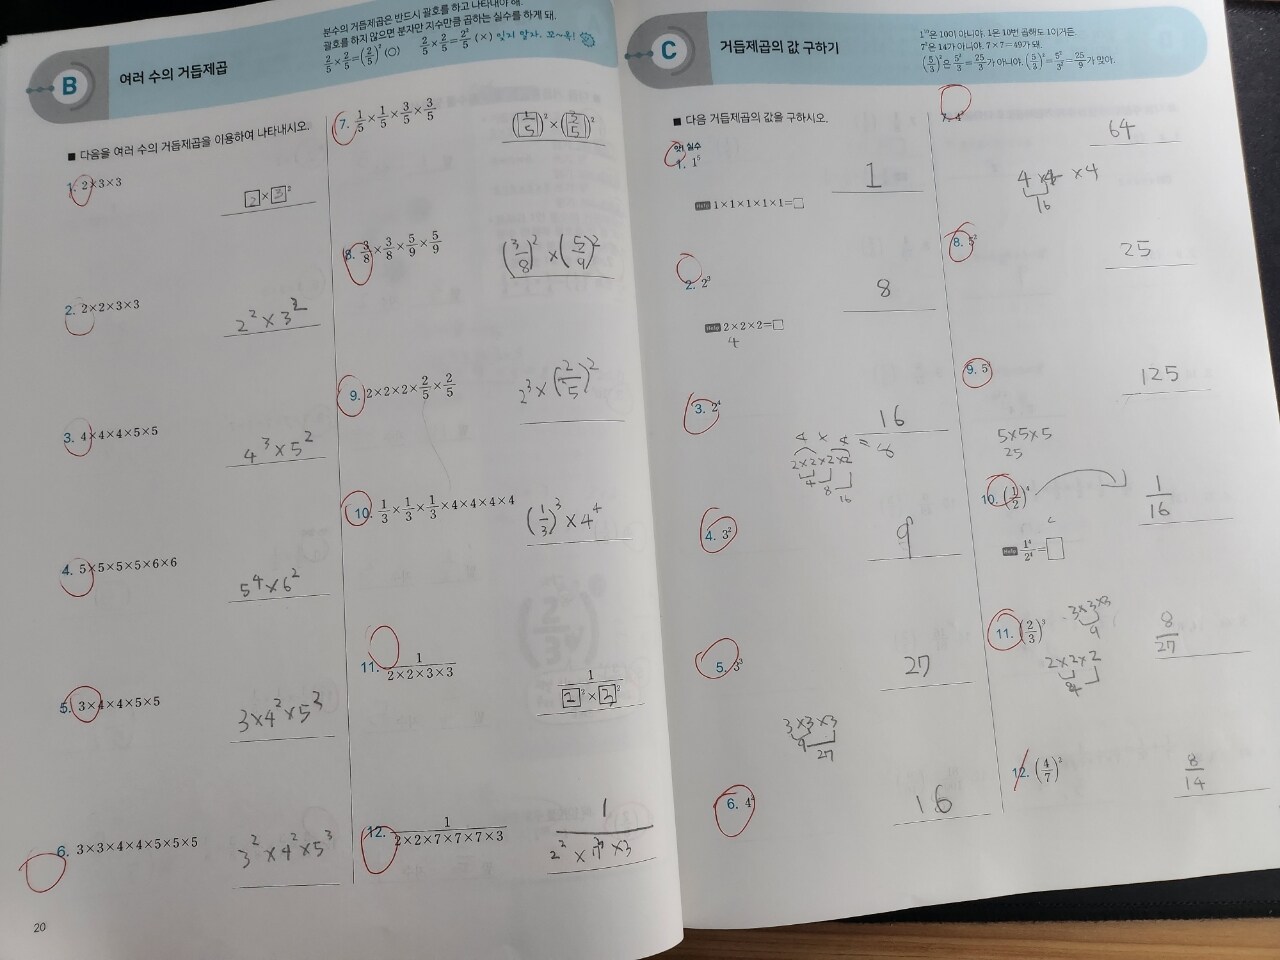 B 여러 수의 거듭제곱
분수의 거듭제곱은 반드시 괄호를 하고 나타내야 해.
괄호를 하지 않으면 분자만 지수만큼 곱하는 실수를 하게 돼.
2/5 × 2/5 = (2/5)² (○) 2/5 × 2/5 = 2²/5 (×) 잊지 말자. 꼬~옥!
■ 다음을 여러 수의 거듭제곱을 이용하여 나타내시오.
1. 2×3×3
2 × 3²
2. 2×2×3×3
2² × 3²
3. 4×4×4×5×5
4³ × 5²
4. 5×5×5×5×6×6
5⁴ × 6²
5. 3×4×4×5×5
3×4²×5³
6. 3×3×4×4×5×5×5
3²×4²×5³
7. 1/5 × 1/5 × 3/5 × 3/5
8. 3/8 × 3/8 × 5/9 × 5/9
(3/8)² × (5/9)²
9. 2×2×2× 2/5 × 2/5
2³ × (2/5)²
10. 1/3 × 1/3 × 1/3 ×4×4×4×4
(1/3)³ × 4⁴
11. 1/(2×2×3×3)
1/(2² × 3²)
12. 1/(2×2×7×7×7×3)
20
C 거듭제곱의 값 구하기
1¹⁰은 10이 아니야. 1은 10번 곱해도 1이거든.
7²은 14가 아니야. 7×7=49가 돼.
(5/3)²은 5²/3 = 25/3가 아니야. (5/3)² = 5²/3² = 25/9가 맞아.
■ 다음 거듭제곱의 값을 구하시오.
앗! 실수
1. 1⁵
1
Help 1×1×1×1×1=□
2. 2³
8
Help 2×2×2=□
4
3. 2⁴
16
4 × 4 = 8
2×2×2×2
4 8 16
4. 3²
9
5. 3³
27
3×3×3
9 27
6. 4²
16
7. 4³
64
4 × 4 × 4
16
8. 5²
25
9. 5³
125
5×5×5
25
10. (1/2)⁴
1/16
Help 1⁴/2⁴ = □
11. (2/3)³
8/27
3×3×3
9
2×2×2
4
12. (4/7)²
8/14